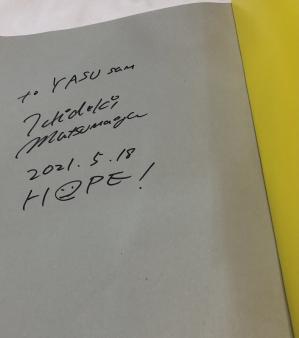 to YASU san
Hideki
Matsunaga
2021.5.18
H☺PE!